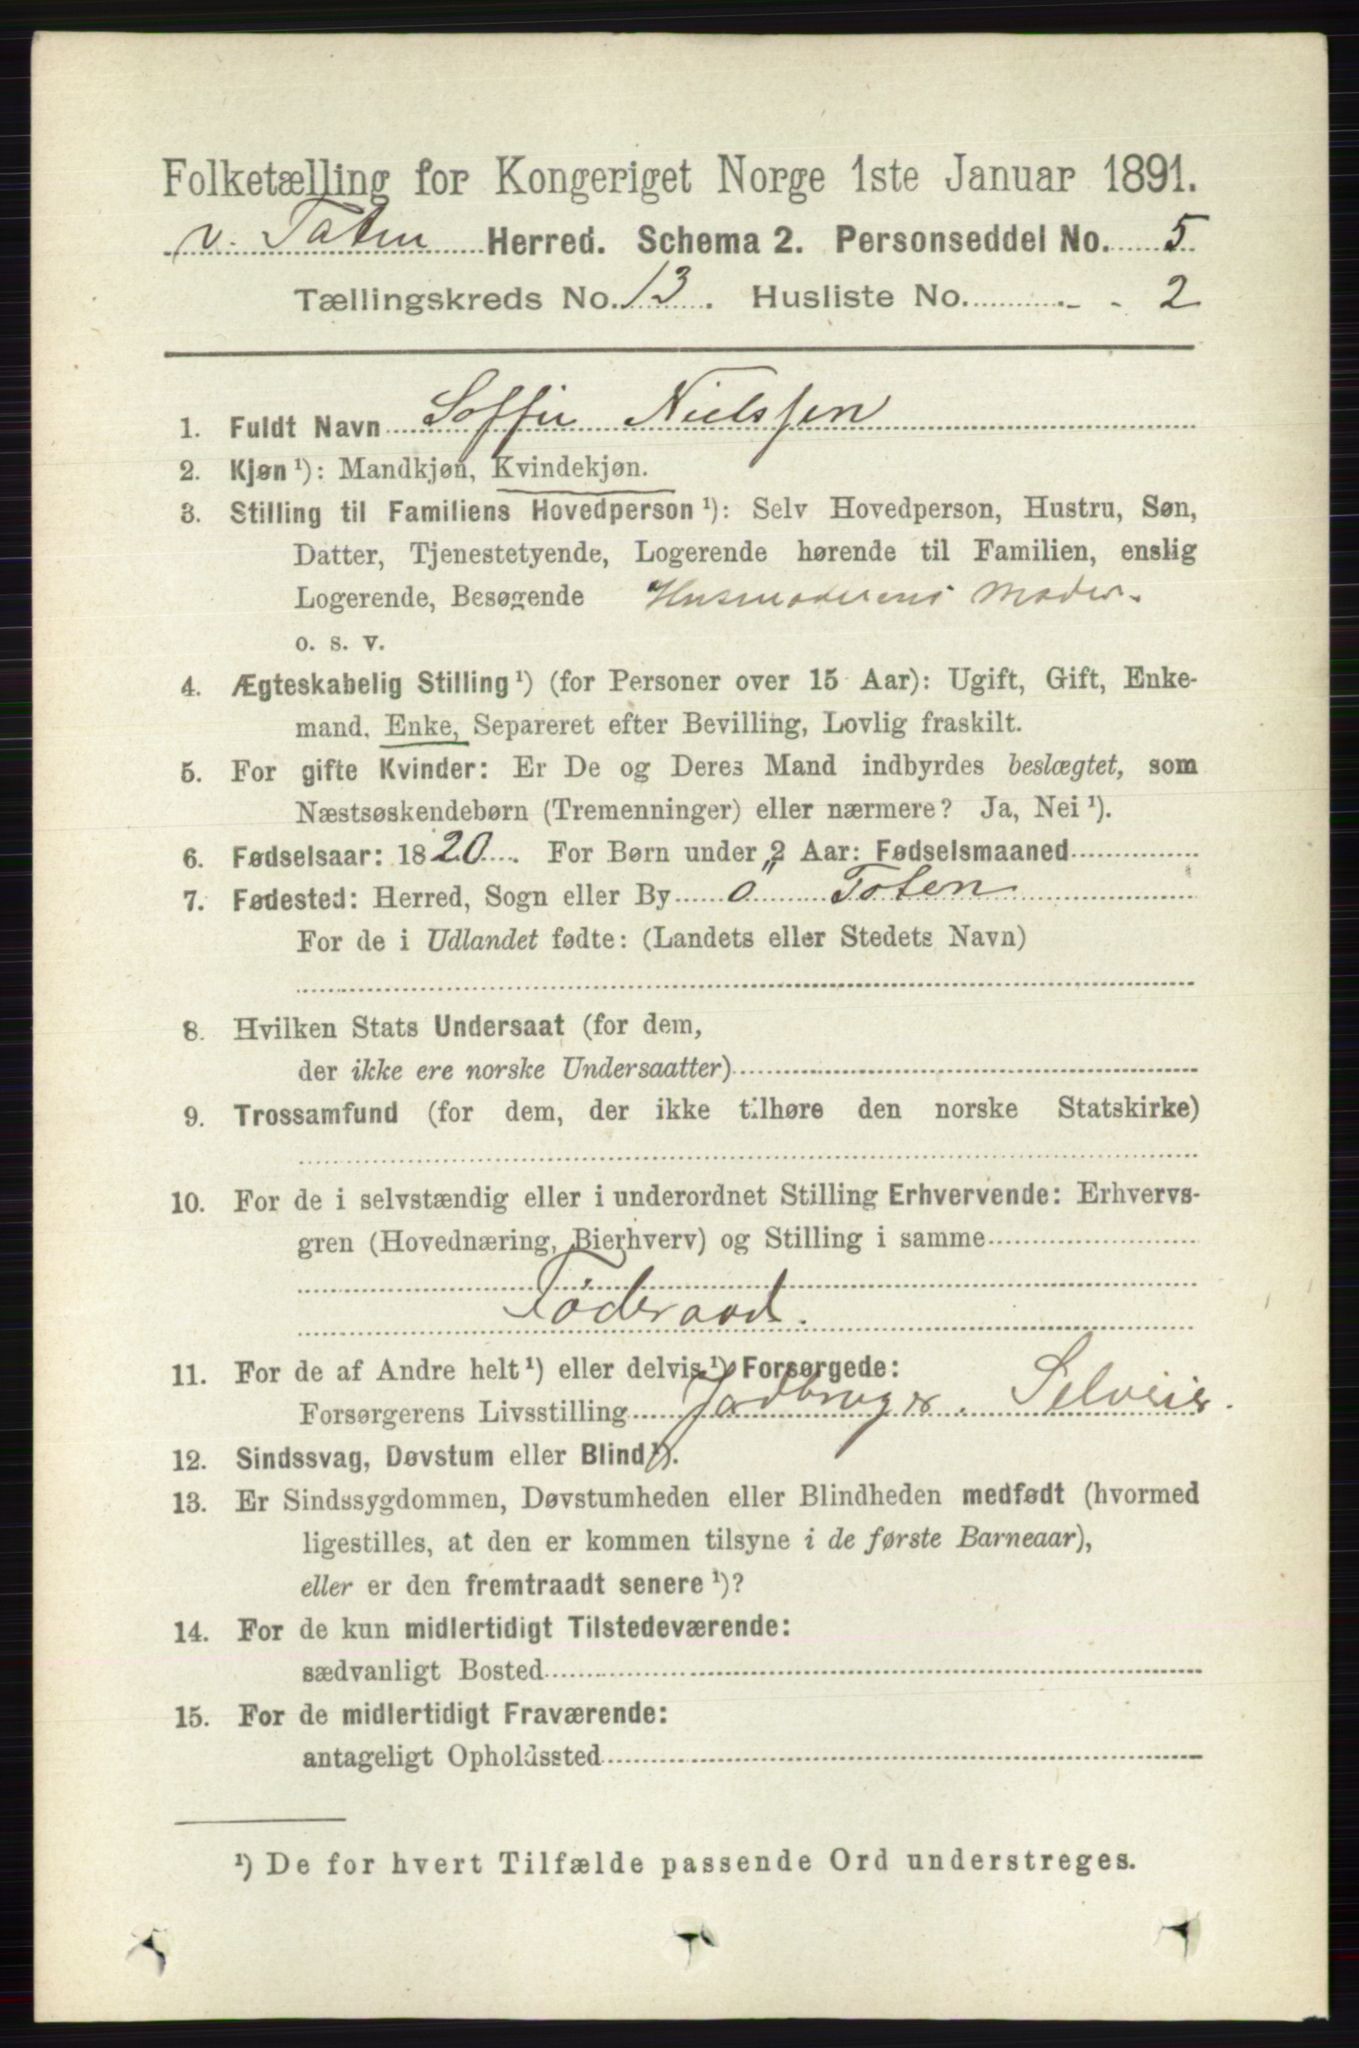 Folketælling for Kongeriget Norge 1ste Januar 1891.
v. Toten Herred. Schema 2. Personseddel No. 5
Tællingskreds No. 13. Husliste No. 2
1. Fuldt Navn Soffie Nielssen
2. Kjøn ¹): Mandkjøn, Kvindekjøn.
3. Stilling til Familiens Hovedperson ¹): Selv Hovedperson, Hustru, Søn,
Datter, Tjenestetyende, Logerende hørende til Familien, enslig
Logerende, Besøgende Husmoderens Moder.
o. s. v.
4. Ægteskabelig Stilling ¹) (for Personer over 15 Aar): Ugift, Gift, Enke-
mand, Enke, Separeret efter Bevilling, Lovlig fraskilt.
5. For gifte Kvinder: Er De og Deres Mand indbyrdes beslægtet, som
Næstsøskendebørn (Tremenninger) eller nærmere? Ja, Nei ¹).
6. Fødselsaar: 1820. For Børn under 2 Aar: Fødselsmaaned
7. Fødested: Herred, Sogn eller By Ö Toten
For de i Udlandet fødte: (Landets eller Stedets Navn)
8. Hvilken Stats Undersaat (for dem,
der ikke ere norske Undersaatter)
9. Trossamfund (for dem, der ikke tilhøre den norske Statskirke)
10. For de i selvstændig eller i underordnet Stilling Erhvervende: Erhvervs-
gren (Hovednæring, Bierhverv) og Stilling i samme
Föderaad.
11. For de af Andre helt ¹) eller delvis ¹) Forsørgede:
Forsørgerens Livsstilling Jordbruger. Selveier.
12. Sindssvag, Døvstum eller Blind ¹).
13. Er Sindssygdommen, Døvstumheden eller Blindheden medfødt (hvormed
ligestilles, at den er kommen tilsyne i de første Barneaar),
eller er den fremtraadt senere ¹)?
14. For de kun midlertidigt Tilstedeværende:
sædvanligt Bosted
15. For de midlertidigt Fraværende:
antageligt Opholdssted
¹) De for hvert Tilfælde passende Ord understreges.